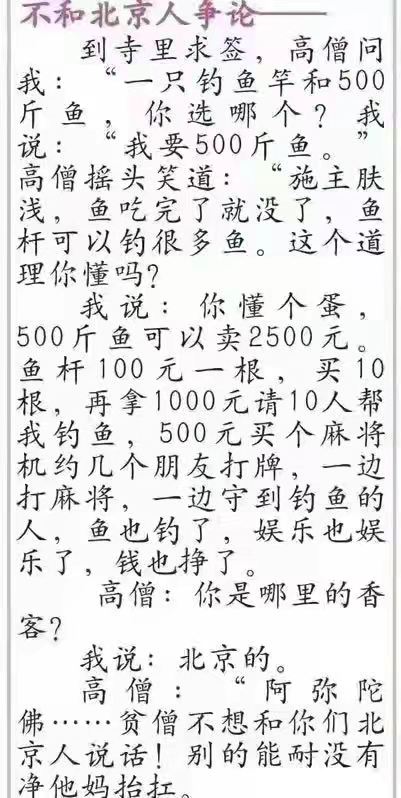 不和北京人争论——
到寺里求签，高僧问
我：“一只钓鱼竿和500
斤鱼，你选哪个？我
说：“我要500斤鱼。”
高僧摇头笑道：“施主肤
浅，鱼吃完了就没了，鱼
杆可以钓很多鱼。这个道
理你懂吗?
我说：你懂个蛋，
500斤鱼可以卖2500元。
鱼杆100元一根，买10
根，再拿1000元请10人帮
我钓鱼，500元买个麻将
机约几个朋友打牌，一边
打麻将，一边守到钓鱼的
人，鱼也钓了，娱乐也娱
乐了，钱也挣了。
高僧：你是哪里的香
客?
我说：北京的。
高僧：“阿弥陀
佛……贫僧不想和你们北
京人说话！别的能耐没有
净他妈抬扛。